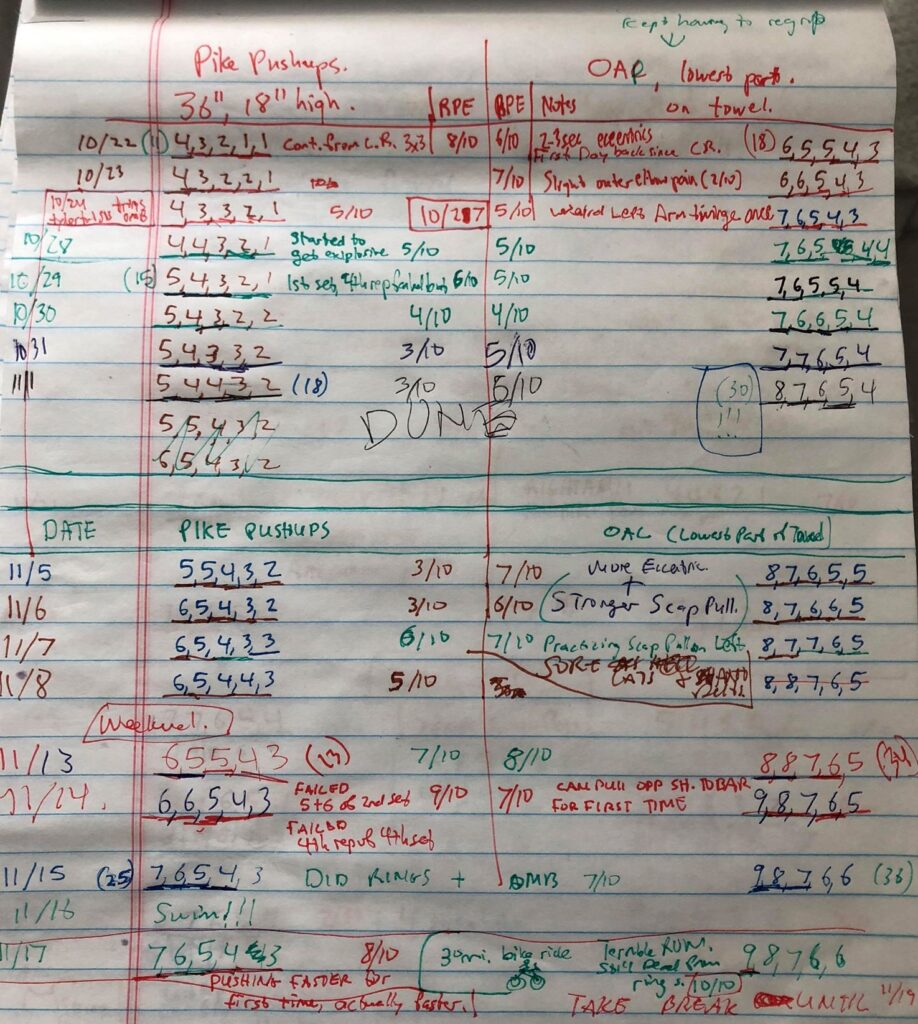 Kept having to regrip
Pike Pushups. OAP, lowest part.
36", 18" high. RPE RPE Notes on towel.
10/22 (11) 4,3,2,1,1 Cont. from C.R. 3x3 8/10 6/10 2-3sec eccentrics (18) 6,5,5,4,3
First Day back since C.R.
10/23 4,3,2,2,1 7/10 Slight outer elbow pain (2/10) 6,6,5,4,3
10/24 4,3,3,2,1 5/10 10/27 5/10 Left Arm once 7,6,5,4,3
10/28 4,4,3,2,1 Started to get explosive 5/10 5/10 7,6,5,4,4
10/29 (15) 5,4,3,2,1 1st set, 4th rep 6/10 5/10 7,6,5,5,4
10/30 5,4,3,2,2 4/10 4/10 7,6,6,5,4
10/31 5,4,3,3,2 3/10 5/10 7,7,6,5,4
11/1 5,4,4,3,2 (18) 3/10 5/10 (30) !!! 8,7,6,5,4
DONE
5,5,4,3,2
6,5,4,3,2
DATE PIKE PUSHUPS OAL (Lowest Part of Towel)
11/5 5,5,4,3,2 3/10 7/10 More Eccentric. 8,7,6,5,5
+
11/6 6,5,4,3,2 3/10 6/10 Stronger Scap Pull. 8,7,6,6,5
11/7 6,5,4,3,3 6/10 7/10 Practicing Scap Pull on Left 8,7,7,6,5
SORE
11/8 6,5,4,4,3 5/10 LATS 8,8,7,6,5
Weekend.
11/13 6 5 5 4 3 (23) 7/10 8/10 8 8 7 6 5 (34)
11/14. 6,6,5,4,3 FAILED 9/10 7/10 CAN PULL OPP SH. TO BAR 9,8,7,6,5
5+6 of 2nd set FOR FIRST TIME
FAILED
4th rep of 4th set
11/15 (25) 7,6,5,4,3 DID RINGS + DMB 7/10 9,8,7,6,6 (36)
11/16 Swim!!!
11/17 7 6,5,4 3 8/10 30mi. bike ride Terrible ROM. 9,8,7,6,6
PUSHING FASTER for Still Dead from
first time, actually faster! rings. 10/10
TAKE BREAK UNTIL 11/19